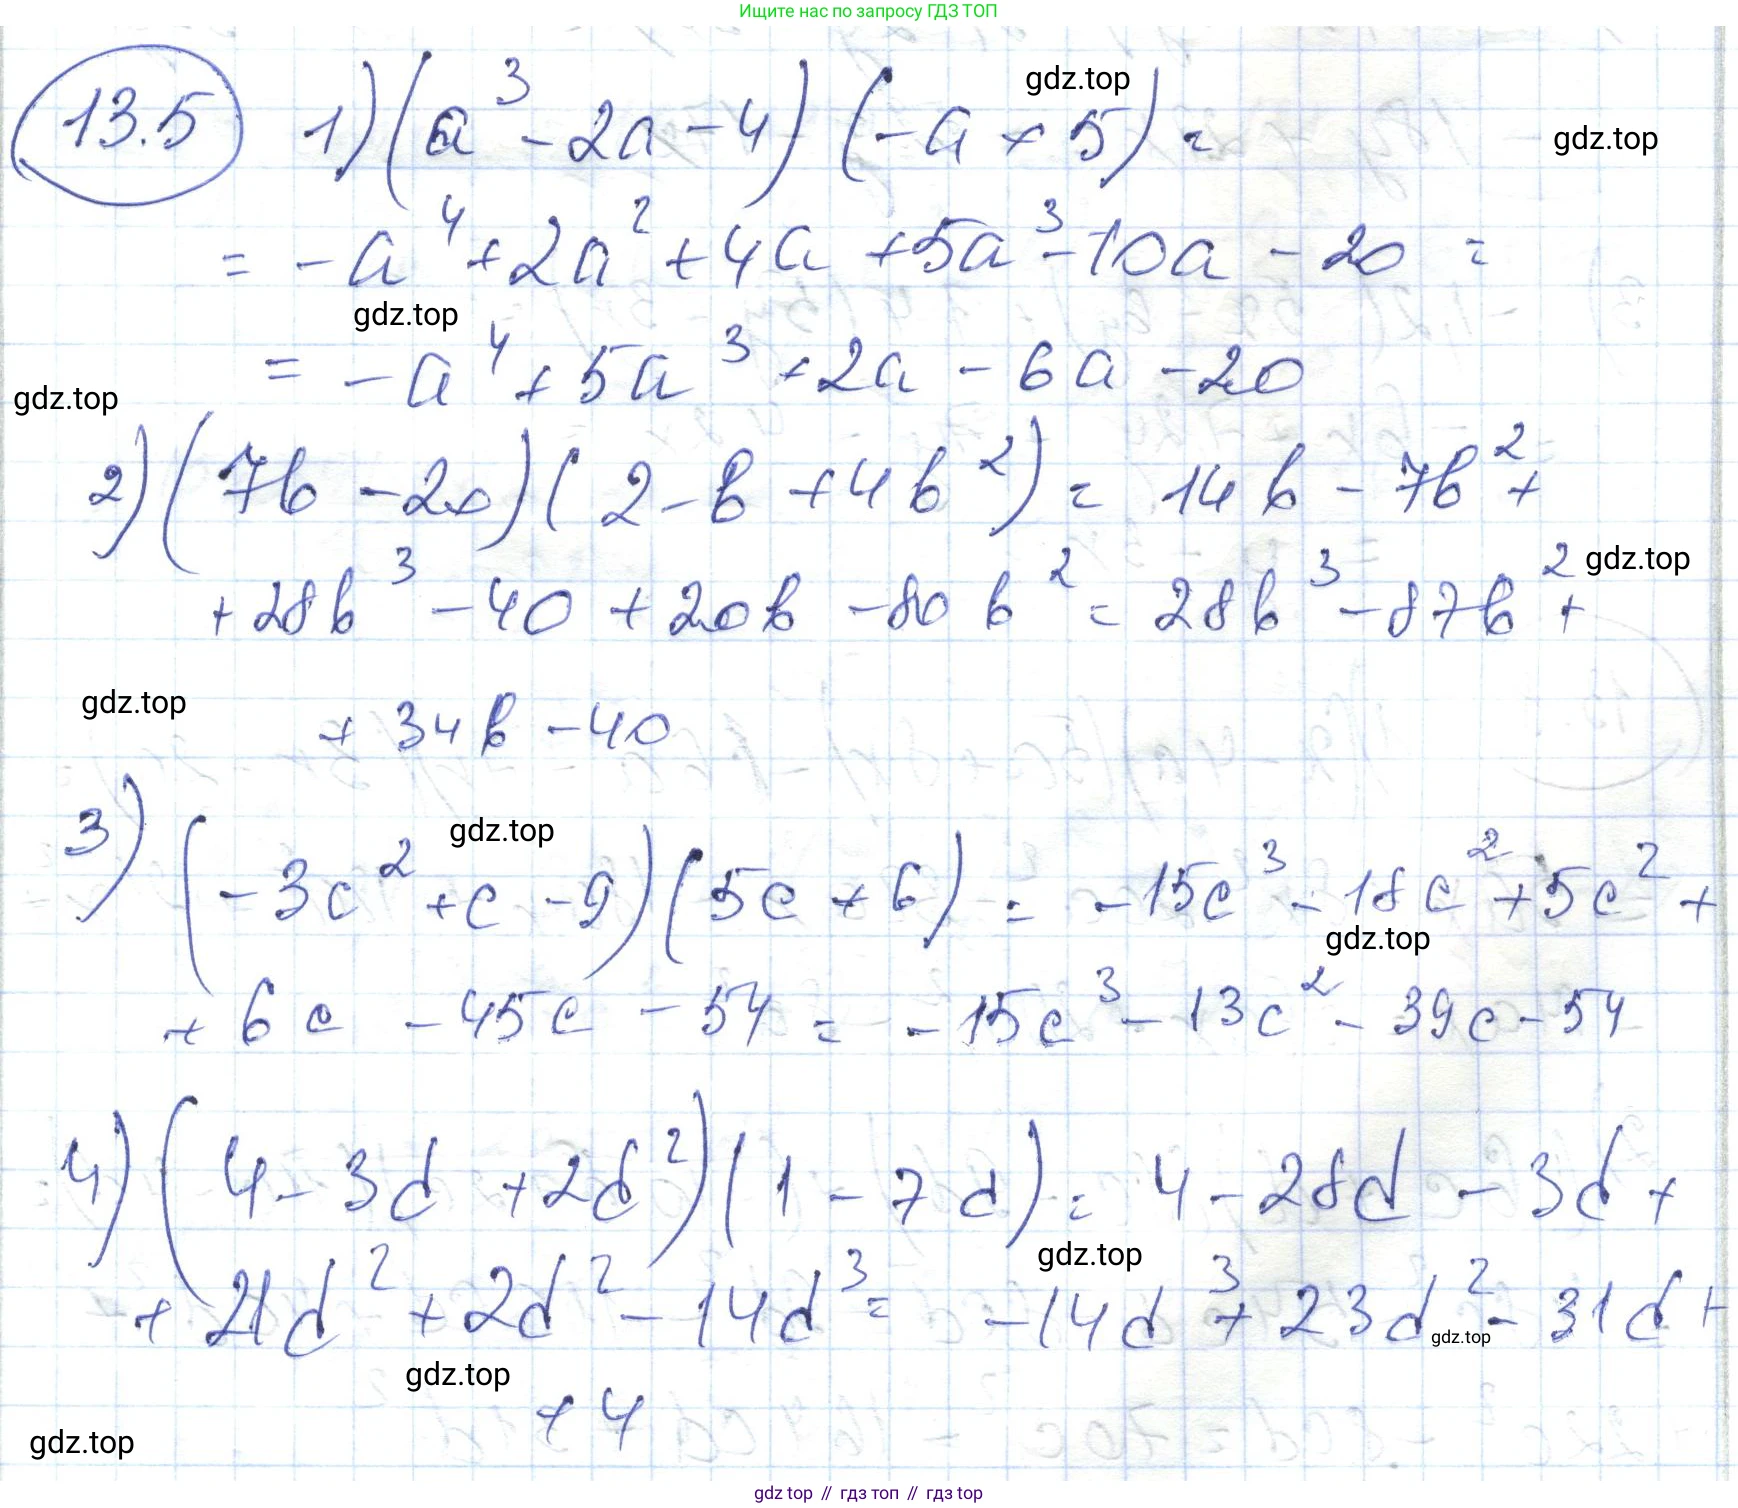 Ищите нас по запросу ГДЗ ТОП
13.5 1) (a³ - 2a - 4) (-a + 5) =
gdz.top
gdz.top
= -a⁴ + 2a² + 4a + 5a³ - 10a - 20 =
gdz.top
= -a⁴ + 5a³ + 2a - 6a - 20
gdz.top
2) (7b - 20) (2 - b + 4b²) = 14b - 7b² +
+ 28b³ - 40 + 20b - 80b² = 28b³ - 87b² +
gdz.top
gdz.top
+ 34b - 40
gdz.top
3) (-3c² + c - 9) (5c + 6) = -15c³ - 18c² + 5c² +
gdz.top
+ 6c - 45c - 54 = -15c³ - 13c² - 39c - 54
4) (4 - 3d + 2d²) (1 - 7d) = 4 - 28d - 3d +
gdz.top
+ 21d² + 2d² - 14d³ = -14d³ + 23d² - 31d +
gdz.top
gdz.top
+ 4
gdz.top
gdz top // гдз топ // gdz top